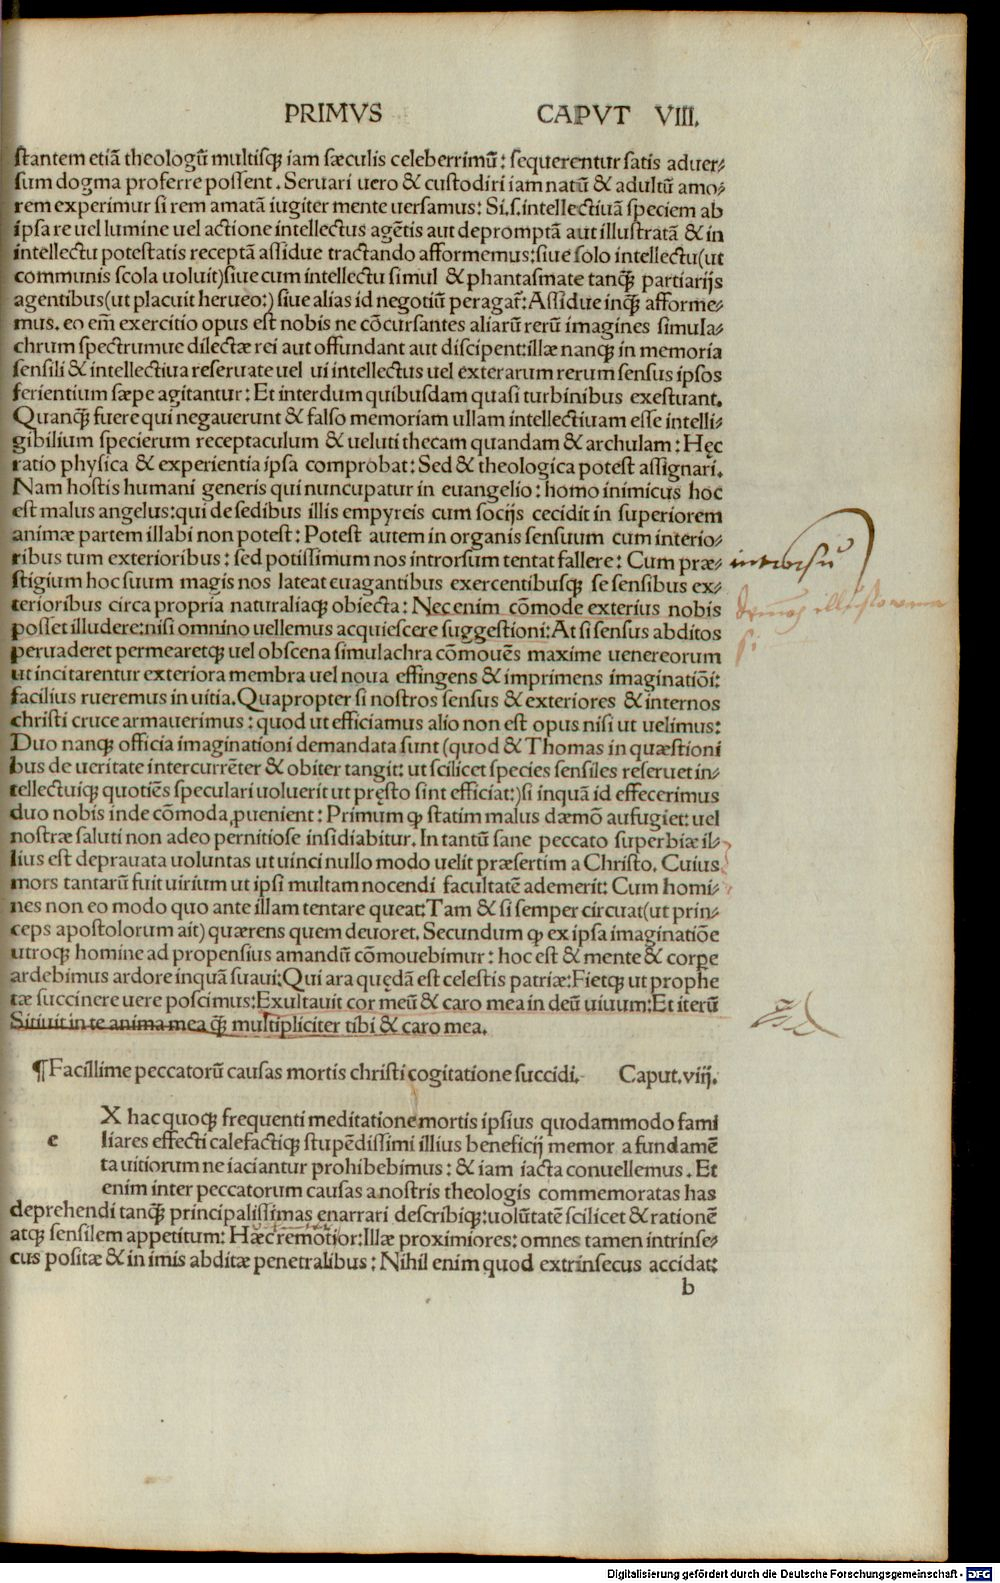 PRIMVS CAPVT VIII.
stantem etiā theologū multisqꝫ iam sæculis celeberrimū: sequerentur satis aduer⸗
sum dogma proferre possent. Seruari uero & custodiri iam natū & adultū amo⸗
rem experimur si rem amatā iugiter mente uersamus: Si.s.intellectiuā speciem ab
ipsa re uel lumine uel actione intellectus agētis aut depromptā aut illustratā & in
intellectu potestatis receptā assidue tractando afformemus: siue solo intellectu(ut
communis scola uoluit)siue cum intellectu simul & phantasmate tanqꝫ partiarijs
agentibus(ut placuit herueo:) siue alias id negotiū peragat̃: Assidue inqꝫ afforme⸗
mus. eo em̄ exercitio opus est nobis ne cōcursantes aliarū rerū imagines simula⸗
chrum spectrumue dilectæ rei aut offundant aut discipent: illæ nanqꝫ in memoria
sensili & intellectiua reseruate uel ui intellectus uel exterarum rerum sensus ipsos
ferientium sæpe agitantur: Et interdum quibusdam quasi turbinibus exestuant.
Quanqꝫ fuere qui negauerunt & falso memoriam ullam intellectiuam esse intelli⸗
gibilium specierum receptaculum & ueluti thecam quandam & archulam: Hęc
ratio physica & experientia ipsa comprobat: Sed & theologica potest assignari.
Nam hostis humani generis qui nuncupatur in euangelio: homo inimicus hoc
est malus angelus: qui de sedibus illis empyreis cum socijs cecidit in superiorem
animæ partem illabi non potest: Potest autem in organis sensuum cum interio⸗
ribus tum exterioribus: sed potissimum nos introrsum tentat fallere: Cum præ⸗
introrsū
stigium hoc suum magis nos lateat euagantibus exercentibusqꝫ se sensibus ex⸗
terioribus circa propria naturaliaqꝫ obiecta: Nec enim cōmode exterius nobis
posset illudere: nisi omnino uellemus acquiescere suggestioni: At si sensus abditos
peruaderet permearetqꝫ uel obscena simulachra cōmouēs maxime uenereorum
ut incitarentur exteriora membra uel noua effingens & imprimens imaginatiōi:
facilius rueremus in uitia. Quapropter si nostros sensus & exteriores & internos
christi cruce armauerimus: quod ut efficiamus alio non est opus nisi ut uelimus:
Duo nanqꝫ officia imaginationi demandata sunt (quod & Thomas in quæstioni
bus de ueritate intercurrēter & obiter tangit: ut scilicet species sensiles reseruet in⸗
tellectuiqꝫ quotiēs speculari uoluerit ut pręsto sint efficiat:)si inquā id effecerimus
duo nobis inde cōmoda ꝓuenient: Primum ꝙ statim malus dæmō aufugiet: uel
nostræ saluti non adeo pernitiose insidiabitur. In tantū sane peccato superbiæ il⸗
lius est deprauata uoluntas ut uinci nullo modo uelit præsertim a Christo. Cuius
mors tantarū fuit uirium ut ipsi multam nocendi facultatē ademerit: Cum homi⸗
nes non eo modo quo ante illam tentare queat: Tam & si semper circuat(ut prin⸗
ceps apostolorum ait) quærens quem deuoret. Secundum ꝙ ex ipsa imaginatiōe
utroqꝫ homine ad propensius amandū cōmouebimur: hoc est & mente & corpe
ardebimus ardore inquā suaui: Qui ara quędā est celestis patriæ: Fietqꝫ ut prophe
tæ succinere uere poscimus: Exultauit cor meū & caro mea in deū uiuum: Et iterū
Sitiuit in te anima mea qꝫ multipliciter tibi & caro mea.
¶Facillime peccatorū causas mortis christi cogitatione succidi. Caput.viij.
e
X hac quoqꝫ frequenti meditatione mortis ipsius quodammodo fami
liares effecti calefactiqꝫ stupēdissimi illius beneficij memor a fundamē
ta uitiorum ne iaciantur prohibebimus: & iam iacta conuellemus. Et
enim inter peccatorum causas a nostris theologis commemoratas has
deprehendi tanqꝫ principalissimas enarrari describiqꝫ: uolūtatē scilicet & rationē
atqꝫ sensilem appetitum: Hæc remotior: Illæ proximiores: omnes tamen intrinse⸗
cus positæ & in imis abditæ penetralibus: Nihil enim quod extrinsecus accidat:
b
Digitalisierung gefördert durch die Deutsche Forschungsgemeinschaft - DFG